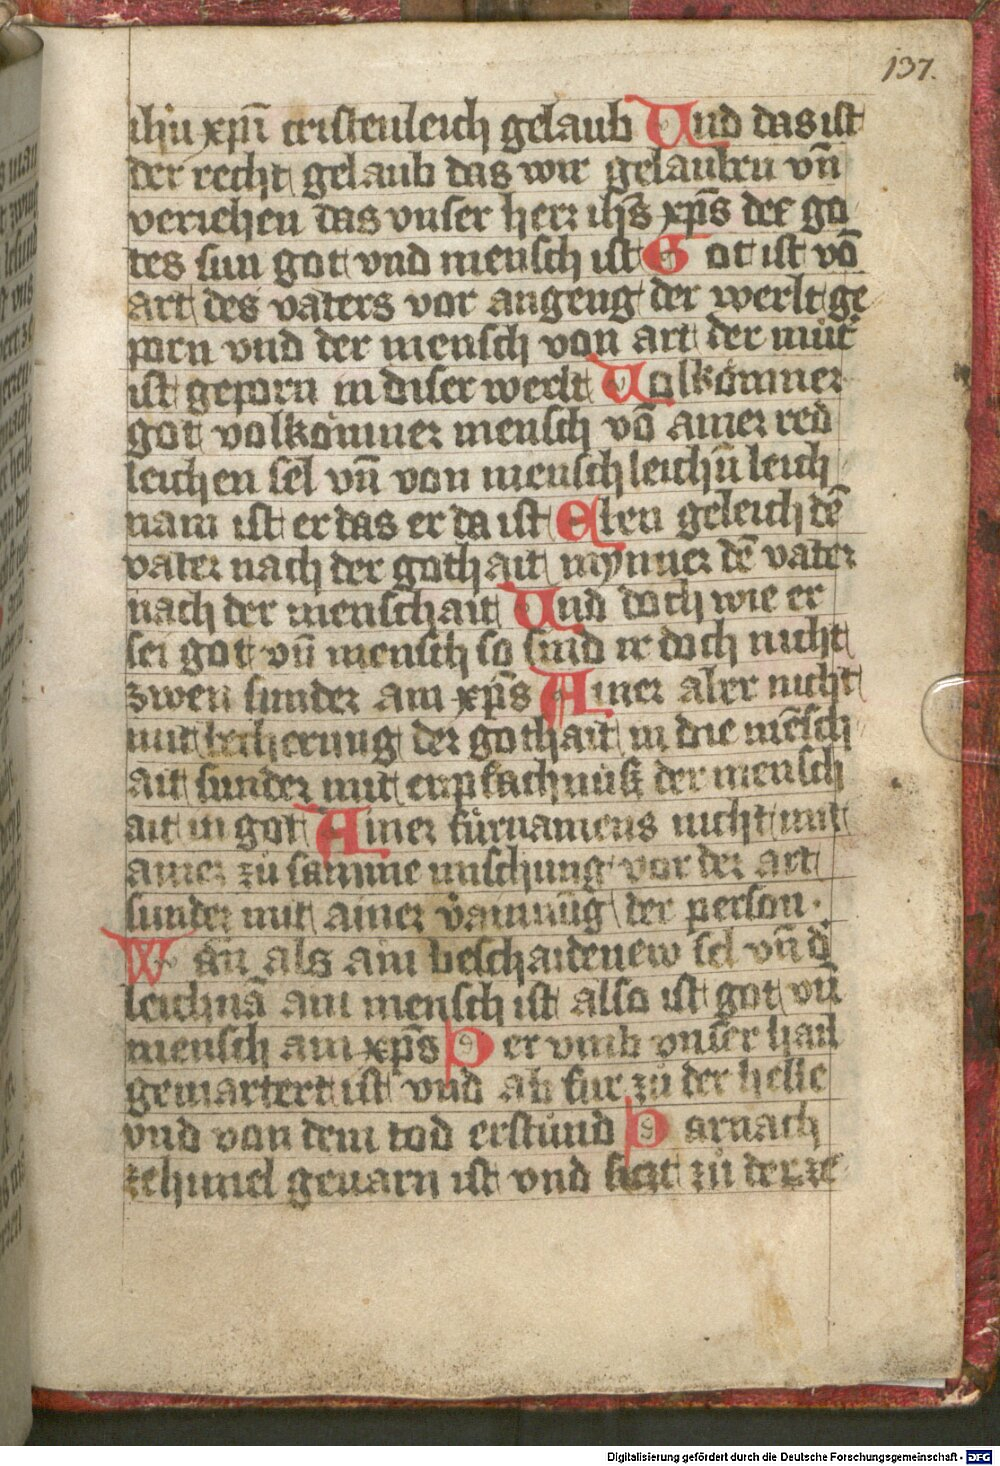 137.
ihu xpm cristenleich gelaub Und das ist
der recht gelaub das wir gelauben vn̄
veriehen das vnser herr ihs̄ xp̄s der go
tes sun got vnd mensch ist Got ist vō
art des vaters vor angeng der werlt ge
porn vnd der mensch von art der mut̄
ist geporn in diser werlt Uolkōmner
got volkōmner mensch vō ainer red
leichen sel vn̄ von menschleichn̄ leich
nam ist er das er da ist Eben geleich dē
vater nach der gothait mynner dē vater
nach der menschait Und doch wie er
sei got vn̄ mensch so sind ir doch nicht
zwen sunder ain xp̄s Ainer aber nicht
mit becherung der gothait in die mēsch
ait sunder mit enpfachnüß der mensch
ait in got Ainer fürnamens nicht mit
ainer zů samme mischung vor der art
sunder mit ainer vͦainnūg der person.
Wan̄ als ain beschaidenew sel vn̄ d̄
leichnā ain mensch ist also ist got vn̄
mensch ain xp̄s Der vmb vnser hail
gemartert ist vnd ab fur zů der helle
vnd von dem tod erstůnd Darnach
ze himel geuarn ist vnd siczt zů der ze
Digitalisierung gefördert durch die Deutsche Forschungsgemeinschaft - DFG